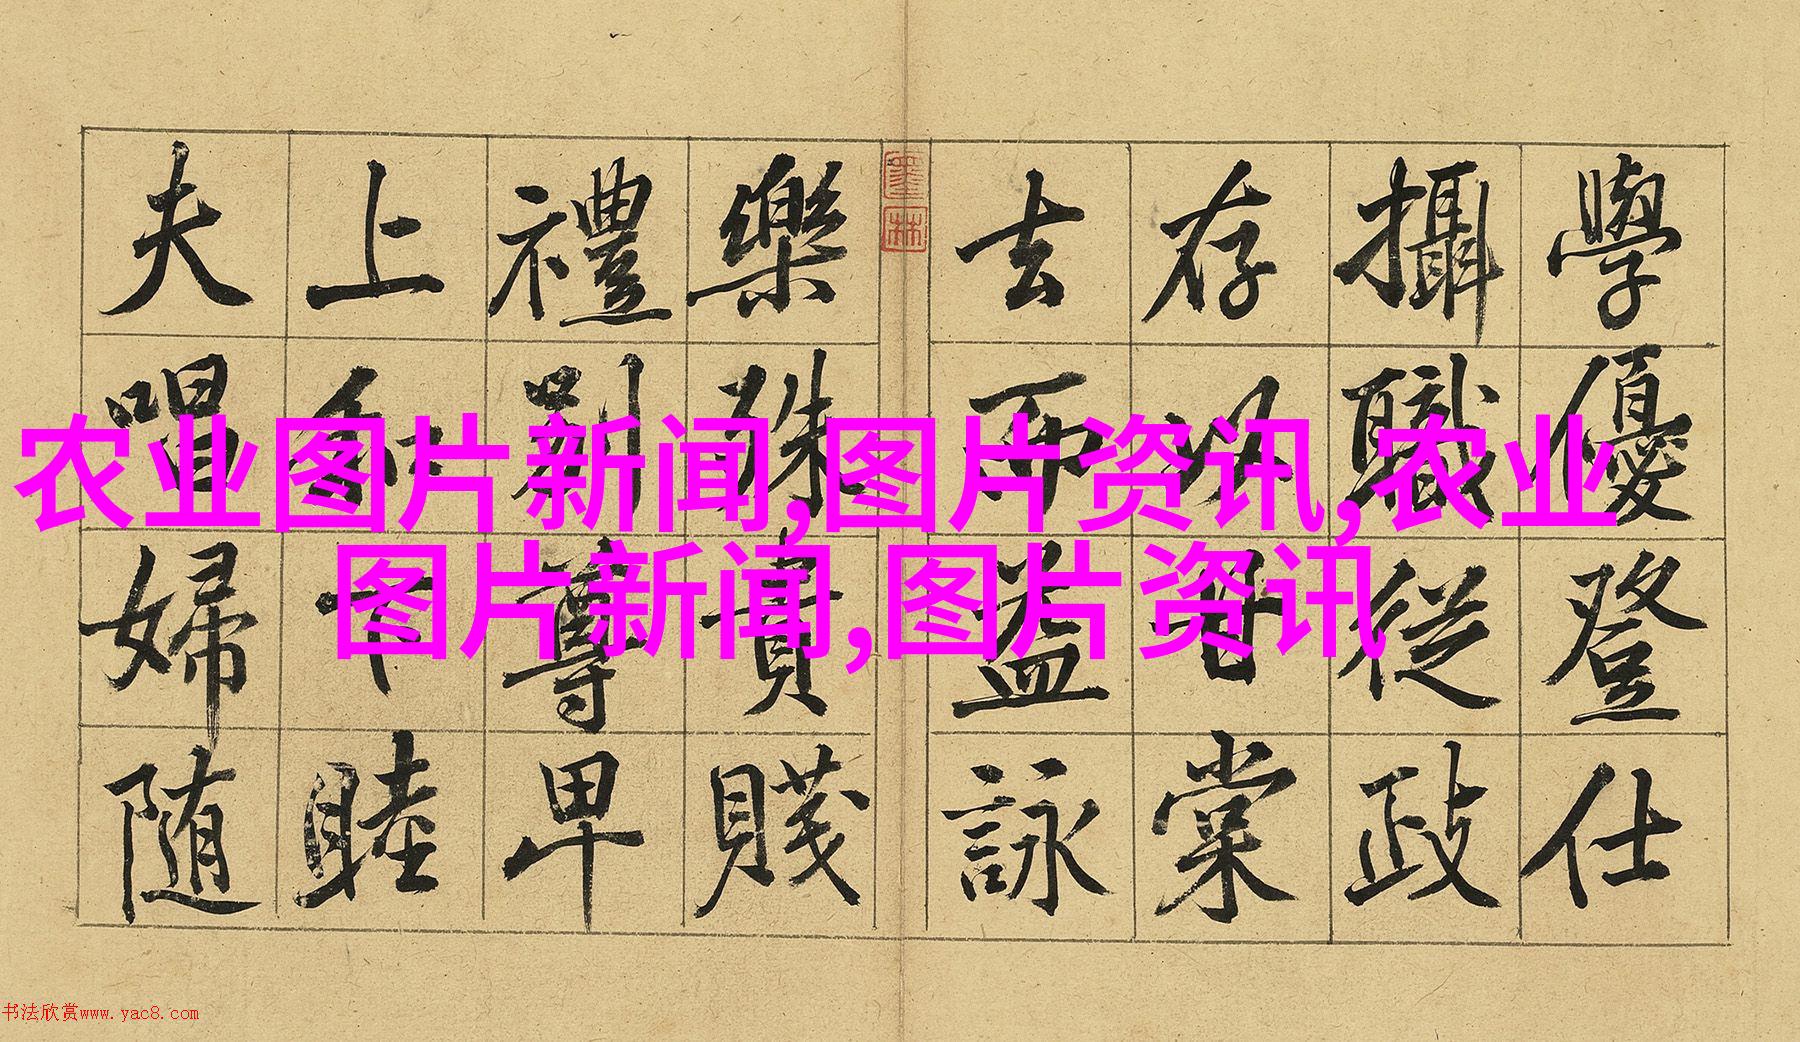 學優登仕
攝職從政
存以甘棠
去而益詠
樂殊貴賤
禮別尊卑
上和下睦
夫唱婦随
墨林
农业图片新闻,图片资讯,农业
图片新闻,图片资讯
书法欣赏www.yac8.com